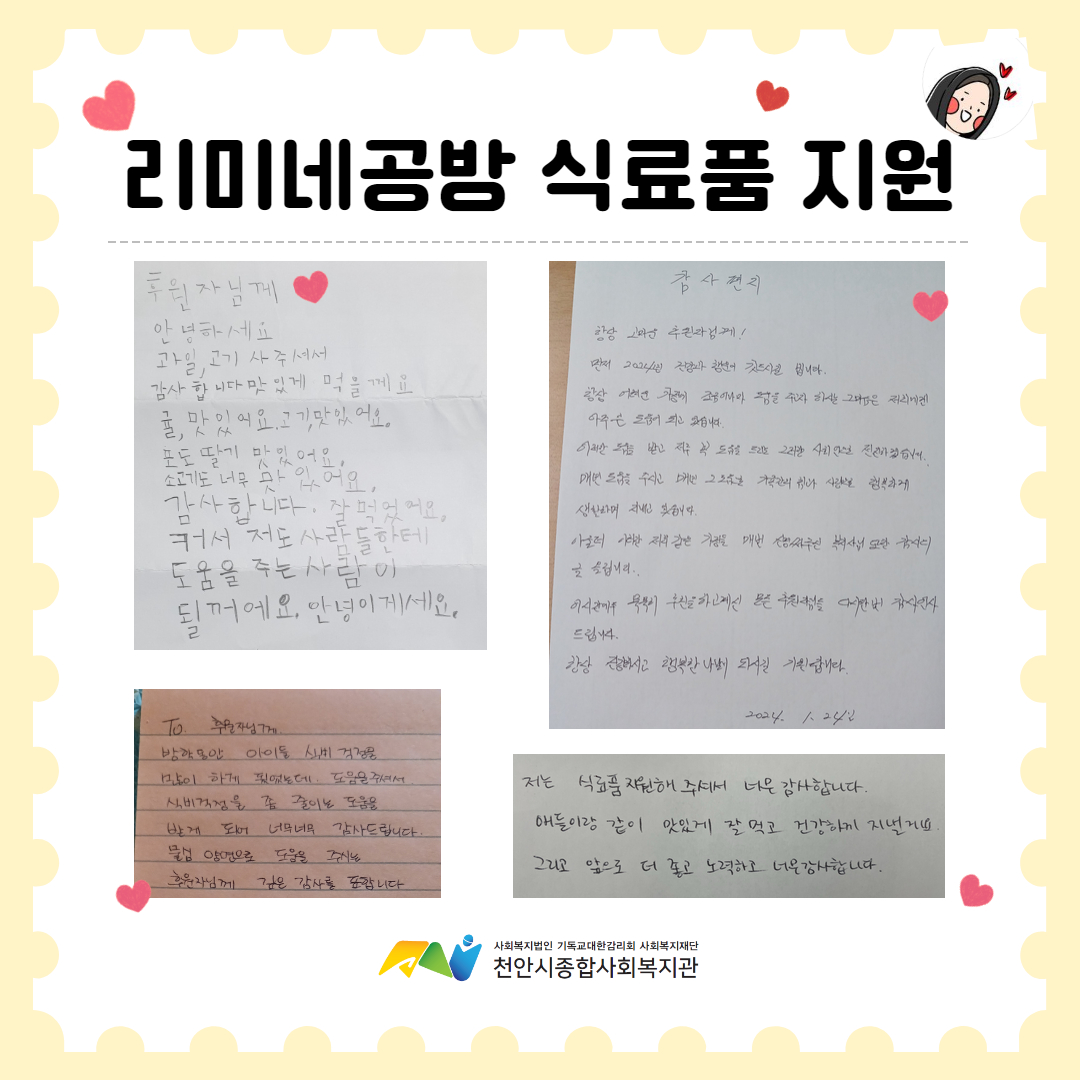 리미네공방 식료품 지원
후원자님께
안녕하세요
과일, 고기 사 주셔서
감사 합 니다 맛 있게 먹을께요
귤, 맛 있어요. 고기, 맛있어요.
포도 딸기 맛있어요.
소고기도 너무 맛 있어요.
감사합니다. 잘 먹었어요.
커서 저도 사람들한테
도움을 주는 사람이
될꺼에요. 안녕이계세요.
감사편지
항상 고마운 후원자님께!
먼저 2024년
항상 어려운
아주 큰 도움이 되고 있습니다.
이러한 도움 받고 저도 꼭 도움을
매번 도움을 주시고 매번
생활하며 지내고 있습니다.
아울러 이러한 저희 같은 가정을 매번
를 드립니다.
드립니다.
항상 건강하시고 행복한 나날이 되시길 기원합니다.
2024. 1. 24일
To. 후원자님께.
방학동안 아이들 식비 걱정을
많이 하게 됬었는데. 도움을 주셔서
식비걱정을 좀 줄이는 도움을
받게 되어 너무너무 감사드립니다.
물심 양면으로 도움을 주시는
후원자님께 깊은 감사를 표합니다
저는 식료품 지원해 주셔서 너무 감사합니다.
애들이랑 같이 맛있게 잘 먹고 건강하게 지낼거요.
그리고 앞으로 더 좋고 노력하고 너무 감사합니다.
사회복지법인 기독교대한감리회 사회복지재단
천안시종합사회복지관